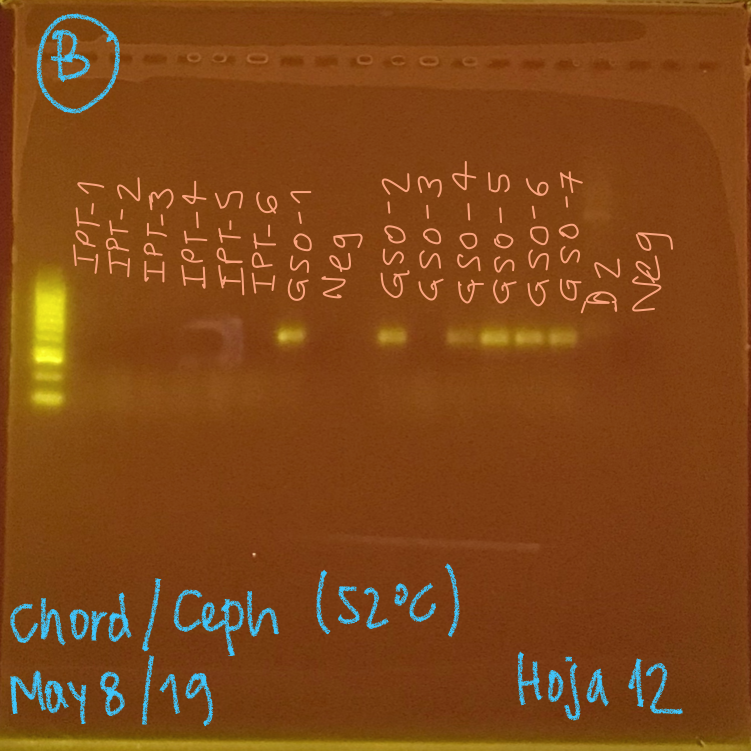 B
IPT-1
IPT-2
IPT-3
IPT-4
IPT-5
IPT-6
GSO-1
Neg
GSO-2
GSO-3
GSO-4
GSO-5
GSO-6
GSO-7
DZ
Neg
Chord/Ceph (52°C)
May 8/19
Hoja 12